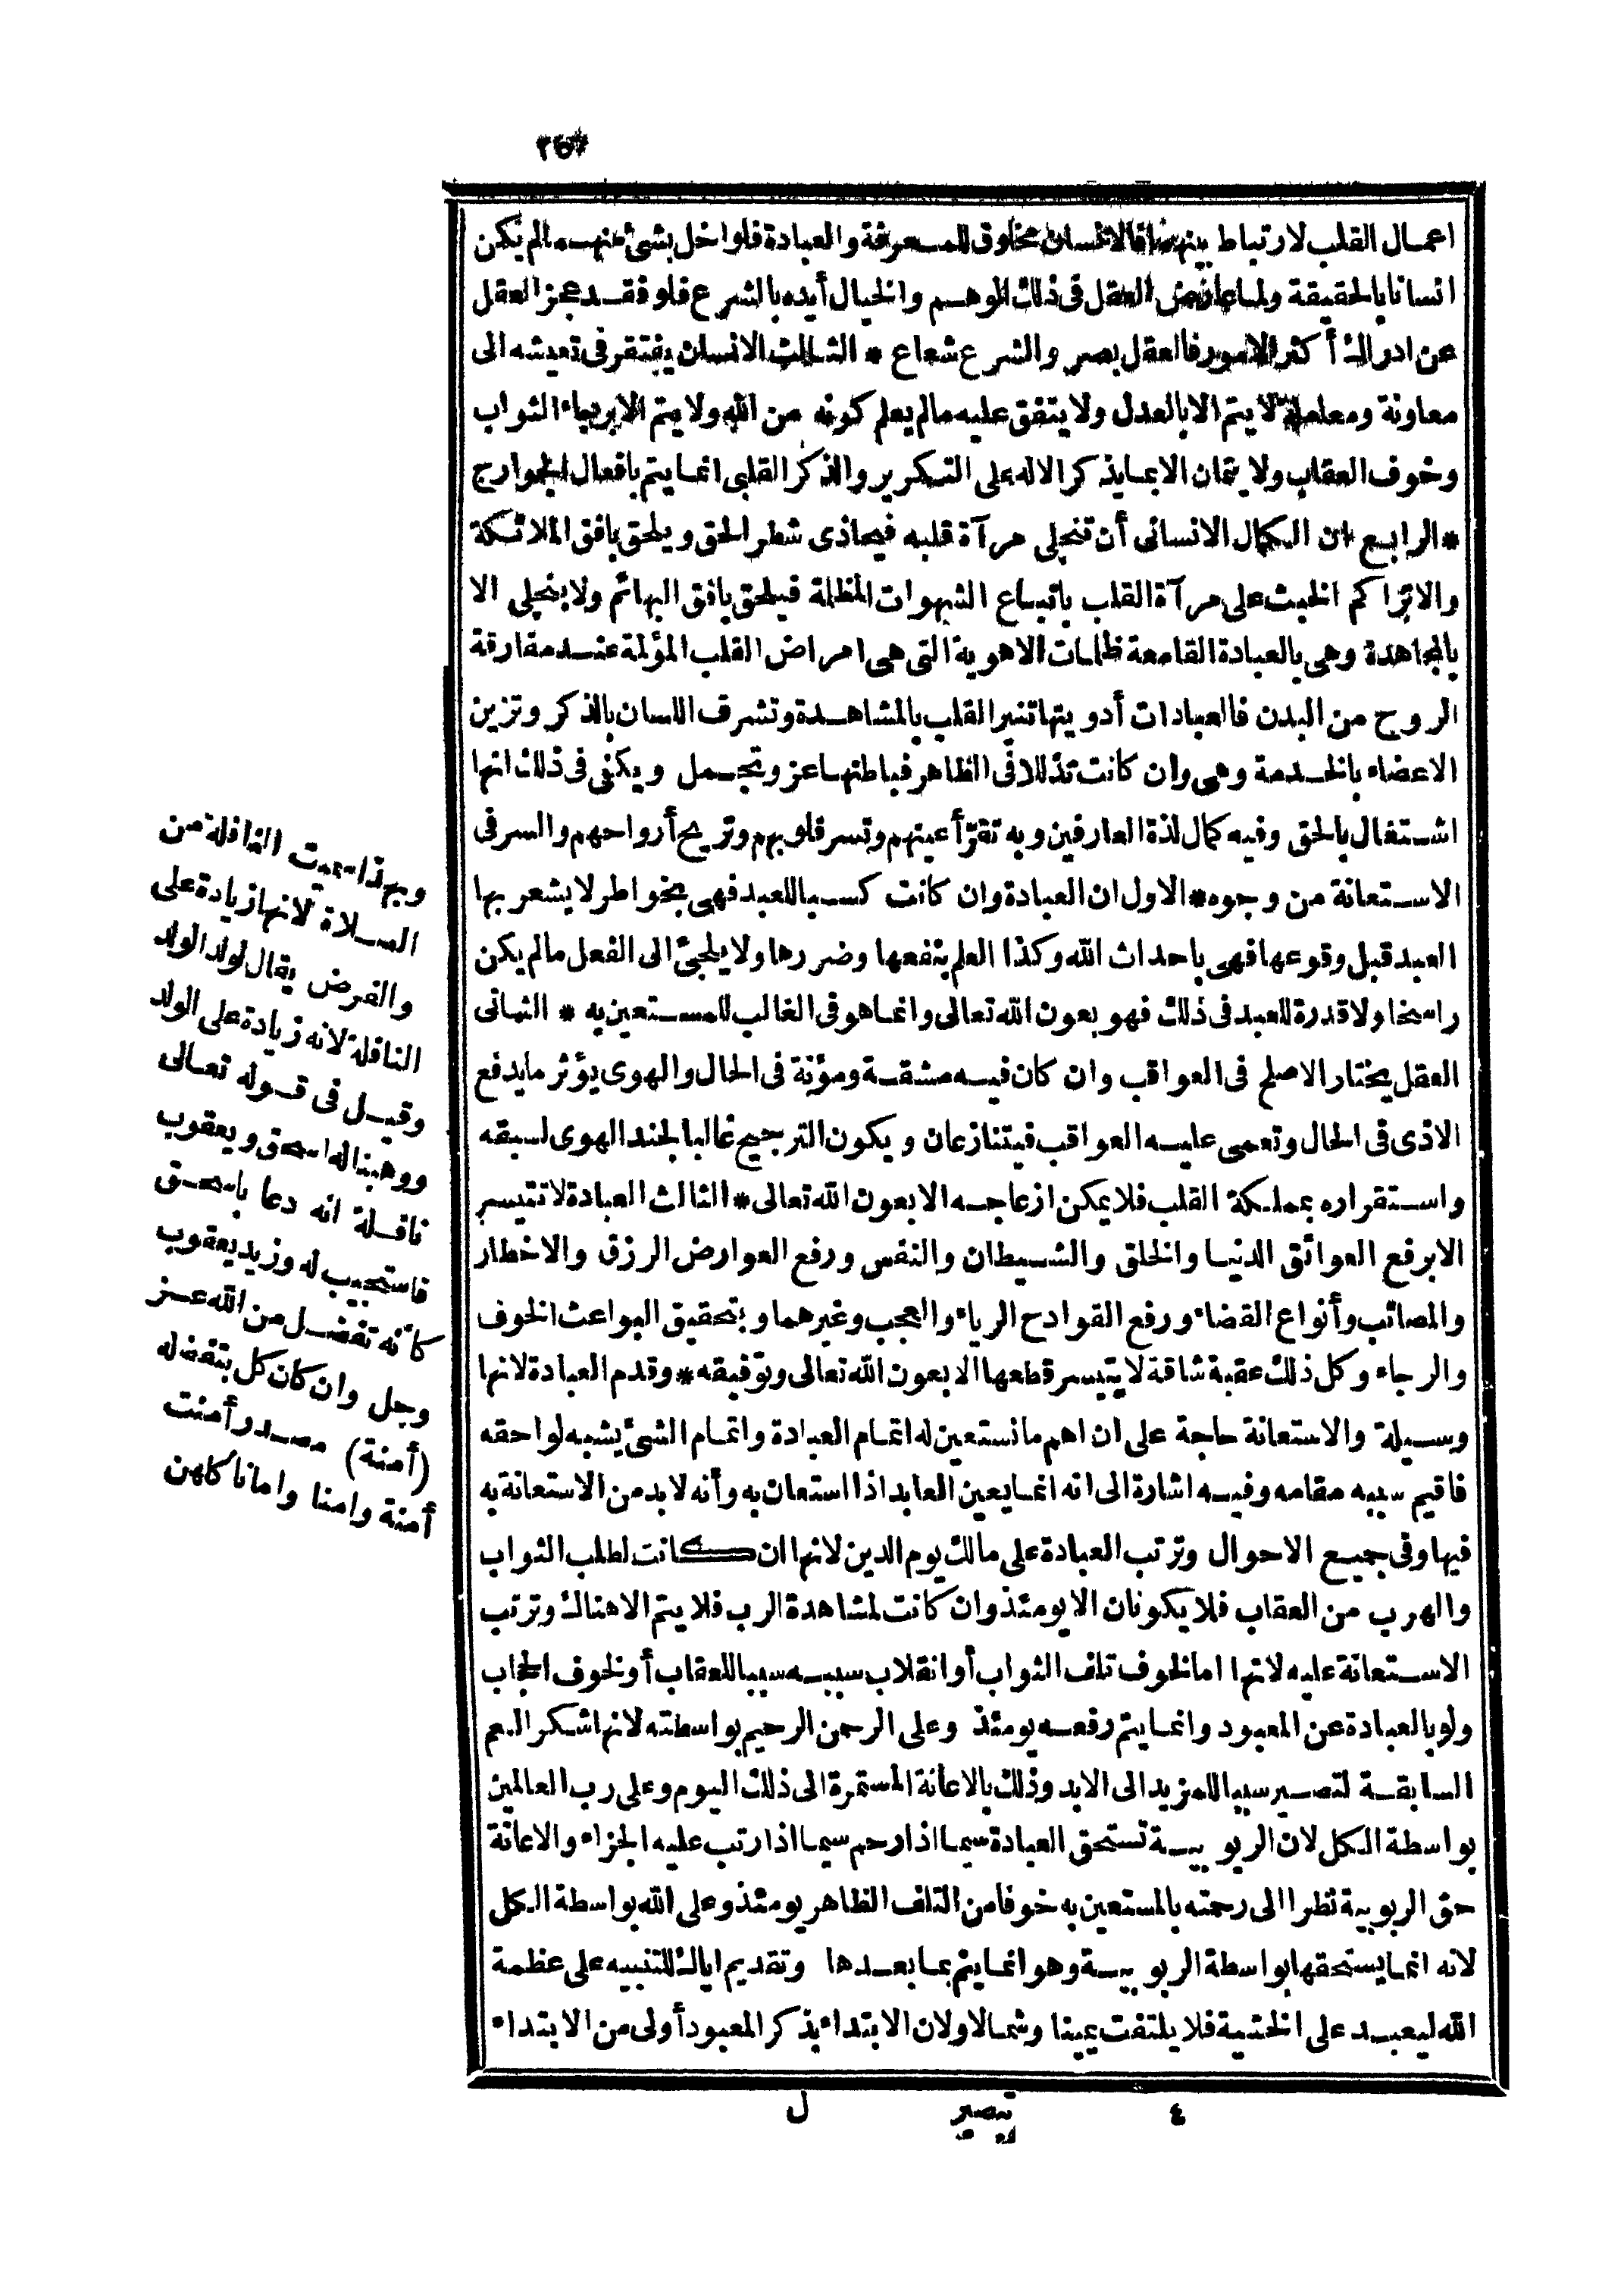 اعمال القلب لارتباط بينهما فالانسان مخلوق للمعرفة والعبادة فلو اخل بشئ منهما لم يكن
انسانا بالحقيقة ولما عارض العقل فى ذلك الوهم والخيال أيده بالشرع فلو فقد عجز العقل
عن ادراك أكثر الامور فالعقل بصر والشرع شعاع * الثالث الانسان يفتقر فى تعيشه الى
معاونة ومعاملة لا يتم الا بالعدل ولا يتفق عليه مالم يعلم كونه من الله ولا يتم الا برجاء الثواب
وخوف العقاب ولا يتمان الا بما يذكر الاله على التكرير والذكر القلبى انما يتم بافعال الجوارح
* الرابع ان الكمال الانسانى أن تنجلى مرآة قلبه فيحاذى شطر الحق ويلحق بافق الملائكة
والا تراكم الخبث على مرآة القلب باتباع الشهوات المظلمة فيلحق بافق البهائم ولا ينجلى الا
بالمجاهدة وهى بالعبادة القامعة ظلمات الاهوية التى هى امراض القلب المؤلمة عند مفارقة
الروح من البدن فالعبادات أدويتها تنير القلب بالمشاهدة وتشرف اللسان بالذكر وتزين
الاعضاء بالخدمة وهى وان كانت تذللا فى الظاهر فباطنها عز وتجمل ويكفى فى ذلك انها
اشتغال بالحق وفيه كمال لذة العارفين وبه تقرّ أعينهم وتسر قلوبهم وتريح أرواحهم والسر فى
الاستعانة من وجوه * الاول ان العبادة وان كانت كسبا للعبد فهى بخواطر لا يشعر بها
العبد قبل وقوعها فهى باحداث الله وكذا العلم بنفعها وضررها ولا يلجئ الى الفعل مالم يكن
راسخا ولا قدرة للعبد فى ذلك فهو بعون الله تعالى وانما هو فى الغالب للمستعين به * الثانى
العقل يختار الاصلح فى العواقب وان كان فيه مشقة ومؤنة فى الحال والهوى يؤثر ما يدفع
الاذى فى الحال وتعمى عليه العواقب فيتنازعان ويكون الترجيح غالبا لجند الهوى لسبقه
واستقراره بمملكة القلب فلا يمكن ازعاجه الا بعون الله تعالى * الثالث العبادة لا تتيسر
الا برفع العوائق الدنيا والخلق والشيطان والنفس ورفع العوارض الرزق والاخطار
والمصائب وأنواع القضاء ورفع القوادح الرياء والعجب وغيرهما وبتحقيق البواعث الخوف
والرجاء وكل ذلك عقبة شاقة لا يتيسر قطعها الا بعون الله تعالى وتوفيقه * وقدم العبادة لانها
وسيلة والاستعانة حاجة على ان اهم ما نستعين له اتمام العبادة واتمام الشئ يشبه لواحقه
فاقيم سببه مقامه وفيه اشارة الى انه انما يعين العابد اذا استعان به وأنه لا بد من الاستعانة به
فيها وفى جميع الاحوال وترتب العبادة على مالك يوم الدين لانها ان كانت لطلب الثواب
والهرب من العقاب فلا يكونان الا يومئذ وان كانت لمشاهدة الرب فلا يتم الا هنالك وترتب
الاستعانة عليه لانها اما لخوف تلف الثواب أو انقلاب سببه سببا للعقاب أو لخوف الحجاب
ولو بالعبادة عن المعبود وانما يتم رفعه يومئذ وعلى الرحمن الرحيم بواسطته لانها شكر النعم
السابقة لتصير سببا للمزيد الى الابد وذلك بالاعانة المستمرة الى ذلك اليوم وعلى رب العالمين
بواسطة الكل لان الربوبية تستحق العبادة سيما اذا رحم سيما اذا رتب عليه الجزاء والاعانة
حق الربوبية نظرا الى رحمته بالمستعين به خوفا من التلف الظاهر يومئذ وعلى الله بواسطة الكل
لانه انما يستحقها بواسطة الربوبية وهو انما يتم بما بعدها وتقديم اياك للتنبيه على عظمة
الله ليعبد على الخشية فلا يلتفت يمينا وشمالا ولان الابتداء بذكر المعبود أولى من الابتداء
وبهذا سميت النافلة من
الصلاة لانها زيادة على
والفرض يقال لولد الولد
النافلة لانه زيادة على الولد
وقيل فى قوله تعالى
ووهبنا له اسحق ويعقوب
نافلة انه دعا باسحق
فاستجيب له وزيد يعقوب
كأنه تفضل من الله عز
وجل وان كان كل بتفضله
(أمنة) مصدر أمنت
أمنة وامنا وامانا كلهن
٤ تبصير ل